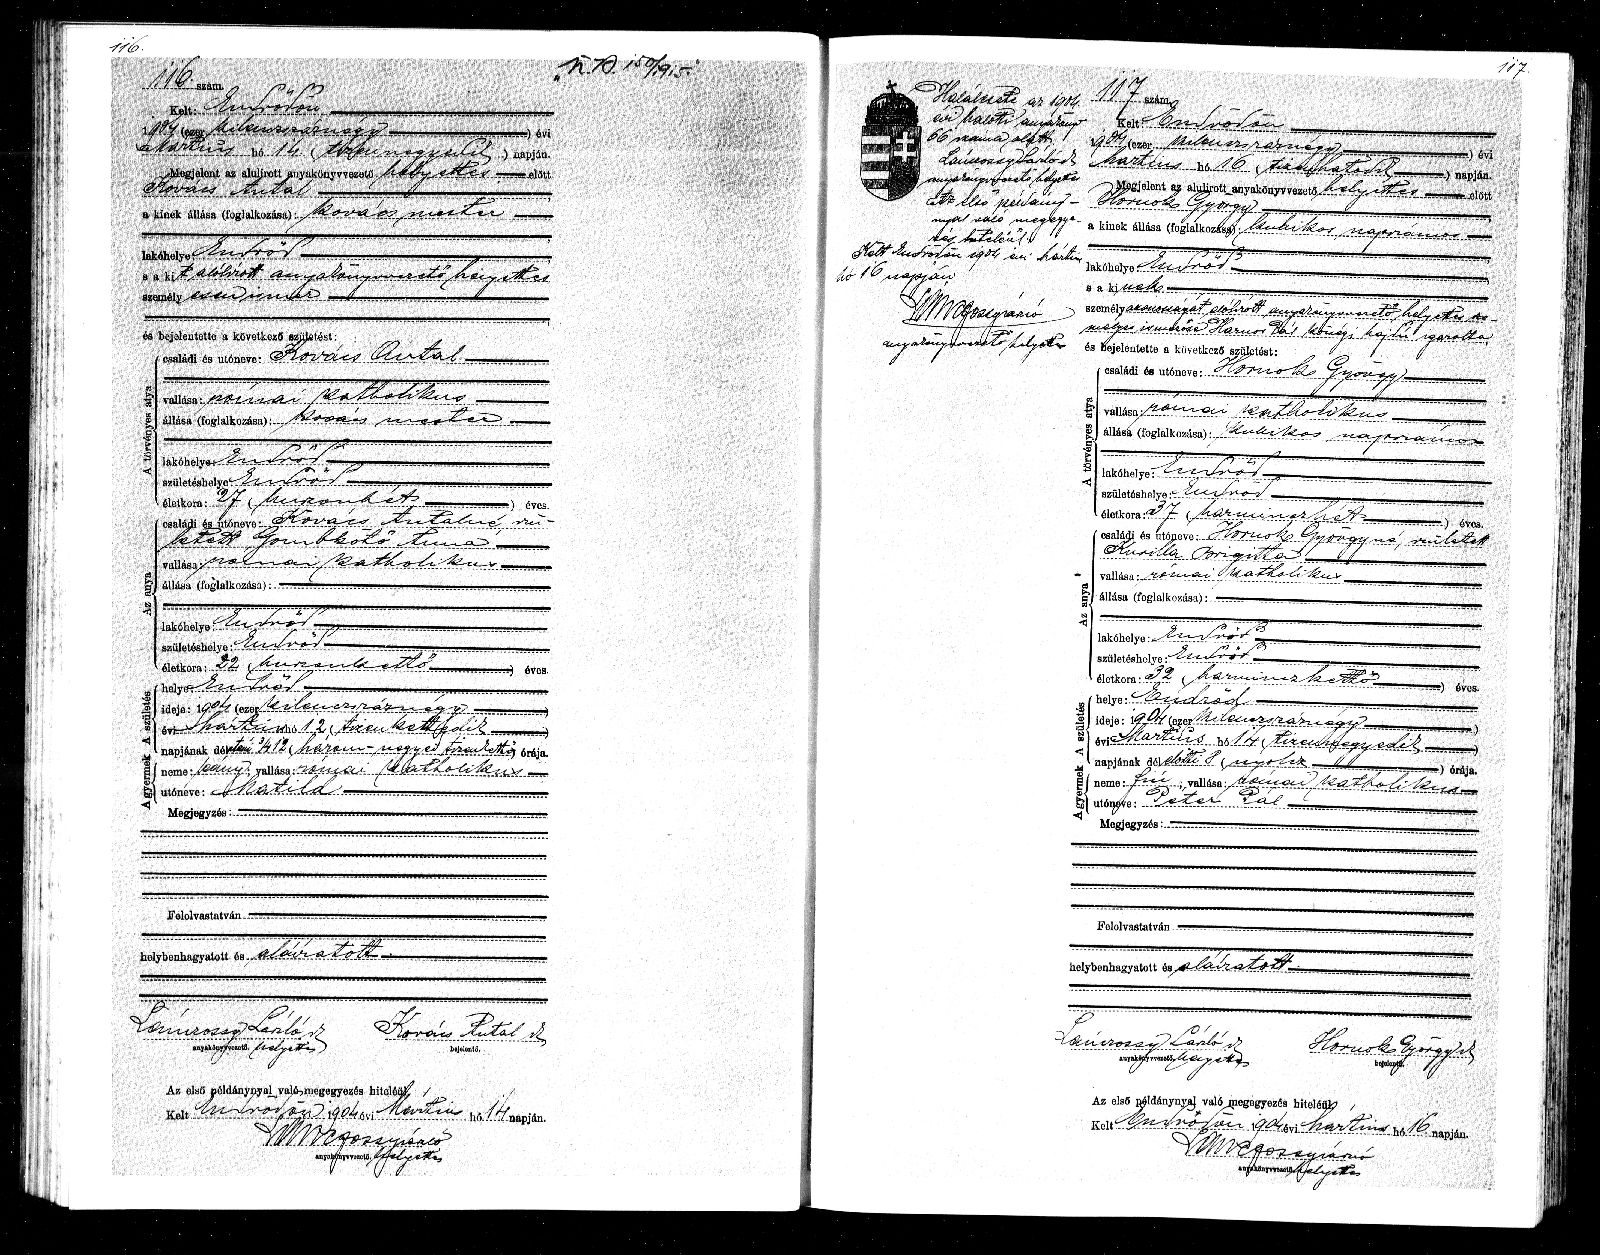 116.
116. szám.
N.B. 150/1915.
Kelt: Endrődön
1904 (ezer kilenczszáznégy) évi
Mártius hó 14 (tizennegyedik) napján.
Megjelent az alulirott anyakönyvvezető helyettes előtt
Kovács Antal
a kinek állása (foglalkozása): kovács mester
lakóhelye: Endrőd
s a kit alólirott anyakönyvvezető helyettes
személyesen ismer
és bejelentette a következő születést:
A törvényes atya
családi és utóneve: Kovács Antal
vallása: római katholikus
állása (foglalkozása): kovács mester
lakóhelye: Endrőd
születéshelye: Endrőd
életkora: 27 (huszonhét) éves.
Az anya
családi és utóneve: Kovács Antalné, szü-
letett Gombkötő Anna
vallása: római katholikus
állása (foglalkozása):
lakóhelye: Endrőd
születéshelye: Endrőd
életkora: 22 (huszonkettő) éves.
A gyermek A születés
helye: Endrőd
ideje: 1904 (ezer kilenczszáznégy)
évi Mártius hó 12 (tizenkettedik)
napjának délután 3/4 12 (három-negyed tizenkettő) órája.
neme: leány; vallása: római katholikus
utóneve: Matild
Megjegyzés:
Felolvastatván
helybenhagyatott és aláiratott
Lánczossy László dr Kovács Antal dr
anyakönyvvezető. helyettes bejelentő.
Az első példánynyal való megegyezés hiteléül
Kelt Endrődön 1904 évi Mártius hó 14 napján.
anyakönyvvezető. helyettes
117.
Halálozás az 1904.
évi haloti anyakönyv
66 száma alatt.
Lánczossy László dr
anyakönyvvezető helyettes
Az első példány-
nyal való megegye-
zés hiteléül
Kelt Endrődön 1904 évi Mártius
hó 16 napján
anyakönyvvezető helyettes
117 szám.
Kelt Endrődön
1904 (ezer kilenczszáznégy) évi
Mártius hó 16 (tizenhatodik) napján.
Megjelent az alulirott anyakönyvvezető helyettes előtt
Hornok György
a kinek állása (foglalkozása): kubikos napszámos
lakóhelye: Endrőd
s a kinek
személyazonosságát alólirott anyakönyvvezető helyettes sze-
mélyes ismerőse Harnos Pál községi hajdú igazolta,
és bejelentette a következő születést:
A törvényes atya
családi és utóneve: Hornok György
vallása: római katholikus
állása (foglalkozása): kubikos napszámos
lakóhelye: Endrőd
születéshelye: Endrőd
életkora: 37 (harminczhét) éves.
Az anya
családi és utóneve: Hornok Györgyné, született
Kurilla Brigitta
vallása: római katholikus
állása (foglalkozása):
lakóhelye: Endrőd
születéshelye: Endrőd
életkora: 32 (harminczkettő) éves.
A gyermek A születés
helye: Endrőd
ideje: 1904 (ezer kilenczszáznégy)
évi Mártius hó 14 (tizennegyedik)
napjának délelőtti 8 (nyolcz) órája.
neme: fiú; vallása: római katholikus
utóneve: Péter Pál
Megjegyzés:
Felolvastatván
helybenhagyatott és aláiratott
Lánczossy László dr Hornok György dr
anyakönyvvezető. helyettes bejelentő.
Az első példánynyal való megegyezés hiteléül
Kelt Endrődön 1904 évi Mártius hó 16 napján.
anyakönyvvezető. helyettes